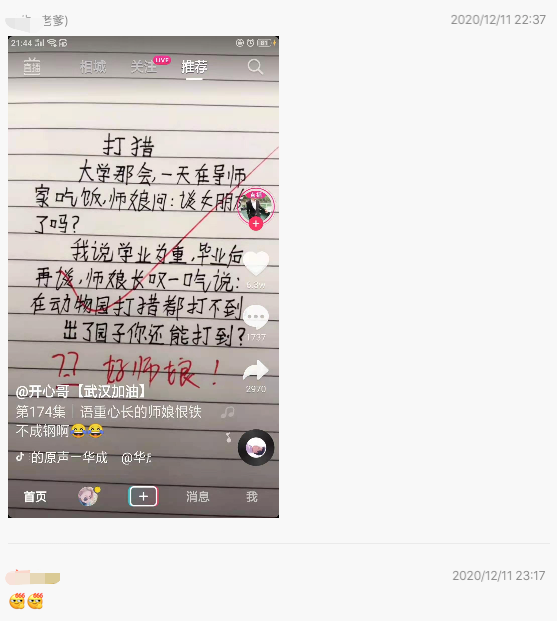 老爹)
2020/12/11 22:37
21:44
直播
相城
关注
LIVE
推荐
打猎
大学那会,一天在导师
家吃饭,师娘问:谈女朋友
了吗?
我说学业为重,毕业后
再谈,师娘长叹一口气说:
在动物园打猎都打不到
出了园子你还能打到?
?? 好师娘!
1737
2970
@开心哥【武汉加油】
第174集|语重心长的师娘恨铁
不成钢啊😂😂
的原声一华成 @华
首页
消息
我
2020/12/11 23:17